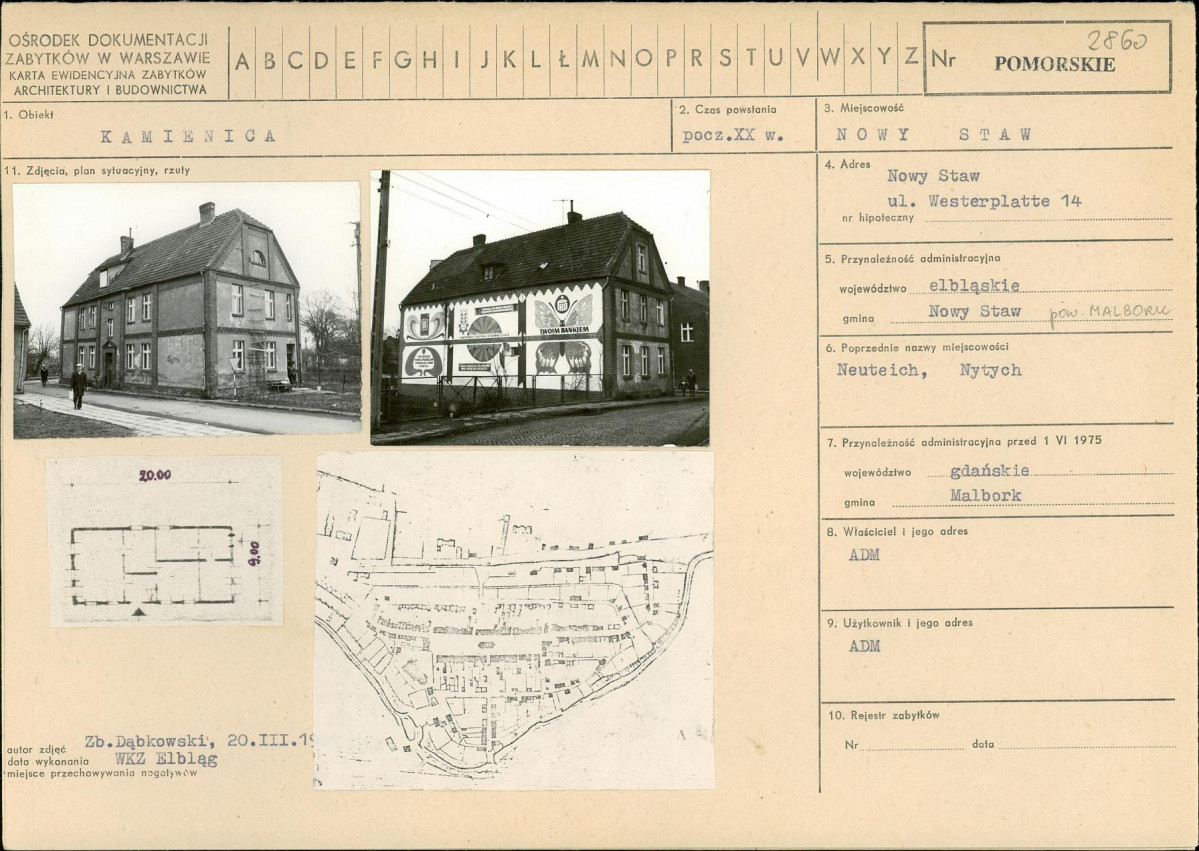 OŚRODEK DOKUMENTACJI
ZABYTKÓW W WARSZAWIE
KARTA EWIDENCYJNA ZABYTKÓW
ARCHITEKTURY I BUDOWNICTWA
A B C D E F G H I J K L Ł M N O P R S T U V W X Y Z
Nr
2860
POMORSKIE
1. Obiekt
KAMIENICA
2. Czas powstania
pocz.XX w.
3. Miejscowość
NOWY STAW
11. Zdjęcia, plan sytuacyjny, rzuty
4. Adres
Nowy Staw
ul. Westerplatte 14
nr hipoteczny
5. Przynależność administracyjna
województwo elbląskie
gmina Nowy Staw pow. MALBORK
6. Poprzednie nazwy miejscowości
Neuteich, Nytych
7. Przynależność administracyjna przed 1 VI 1975
województwo gdańskie
gmina Malbork
8. Właściciel i jego adres
ADM
9. Użytkownik i jego adres
ADM
10. Rejestr zabytków
Nr data
TWOIM BANKIEM
20.00
9.00
autor zdjęć Zb.Dąbkowski, 20.III.19
data wykonania WKZ Elbląg
miejsce przechowywania negatywów